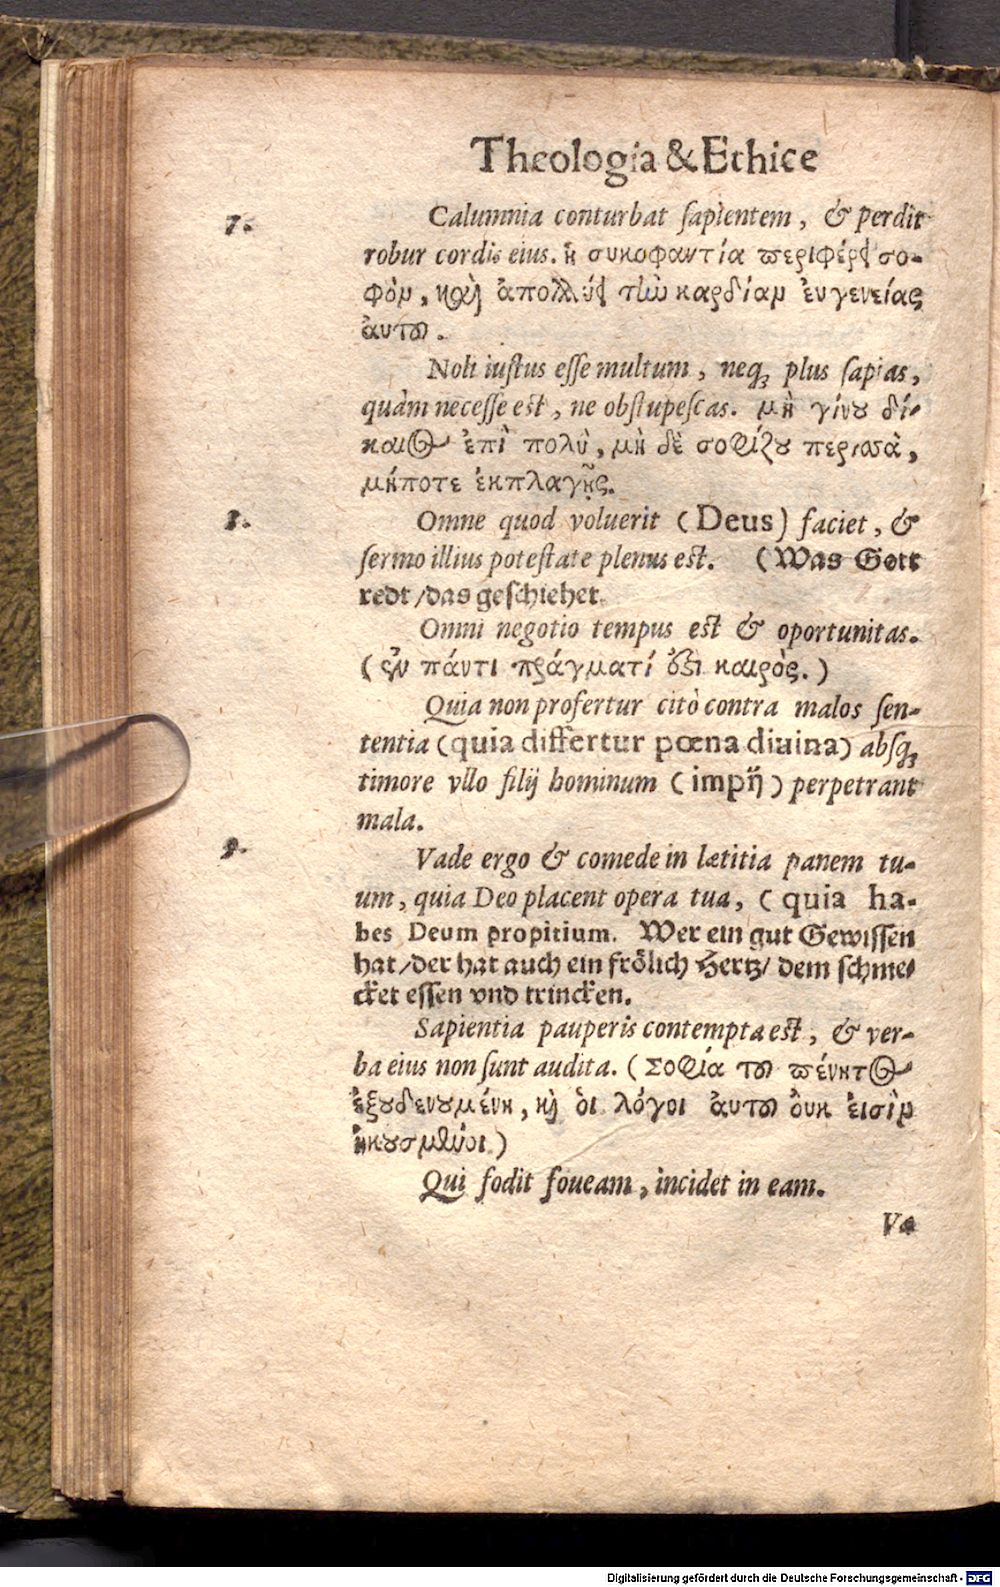 Theologia & Ethice
7. Calumnia conturbat ſapientem, & perdit
robur cordis eius. ἡ συκοφαντία περιφέρει σο-
φὸν, καὶ ἀπολλύει τὴν καρδίαν ἐυγενείας
ἀυτοῦ.
Noli iuſtus eſſe multum, neq; plus ſapias,
quàm neceſſe eſt, ne obſtupeſcas. μὴ γίνου δί-
καιος ἐπὶ πολὺ, μὴ δὲ σοφίζου περισσὰ,
μήποτε ἐκπλαγῇς.
8. Omne quod voluerit (Deus) faciet, &
ſermo illius poteſtate plenus eſt. (Was Gott
redt/das geſchiehet.
Omni negotio tempus eſt & oportunitas.
(ἐν πάντι πράγματί ὅξι καιρὸς.)
Quia non profertur citò contra malos ſen-
tentia (quia differtur pœna diuina) abſq;
timore vllo filij hominum (impij) perpetrant
mala.
9. Vade ergo & comede in lætitia panem tu-
um, quia Deo placent opera tua, (quia ha-
bes Deum propitium. Wer ein gut Gewiſſen
hat/der hat auch ein frölich Hertz/ dem ſchme-
cket eſſen vnd trincken.
Sapientia pauperis contempta eſt, & ver-
ba eius non ſunt audita. (Σοφία τοῦ πένητος
ἐξουδενουμένη, καὶ ὁι λόγοι ἀυτοῦ ὀυκ ἐισὶν
ἠκουσμένοι.)
Qui fodit foueam, incidet in eam.
Va
Digitalisierung gefördert durch die Deutsche Forschungsgemeinschaft - DFG